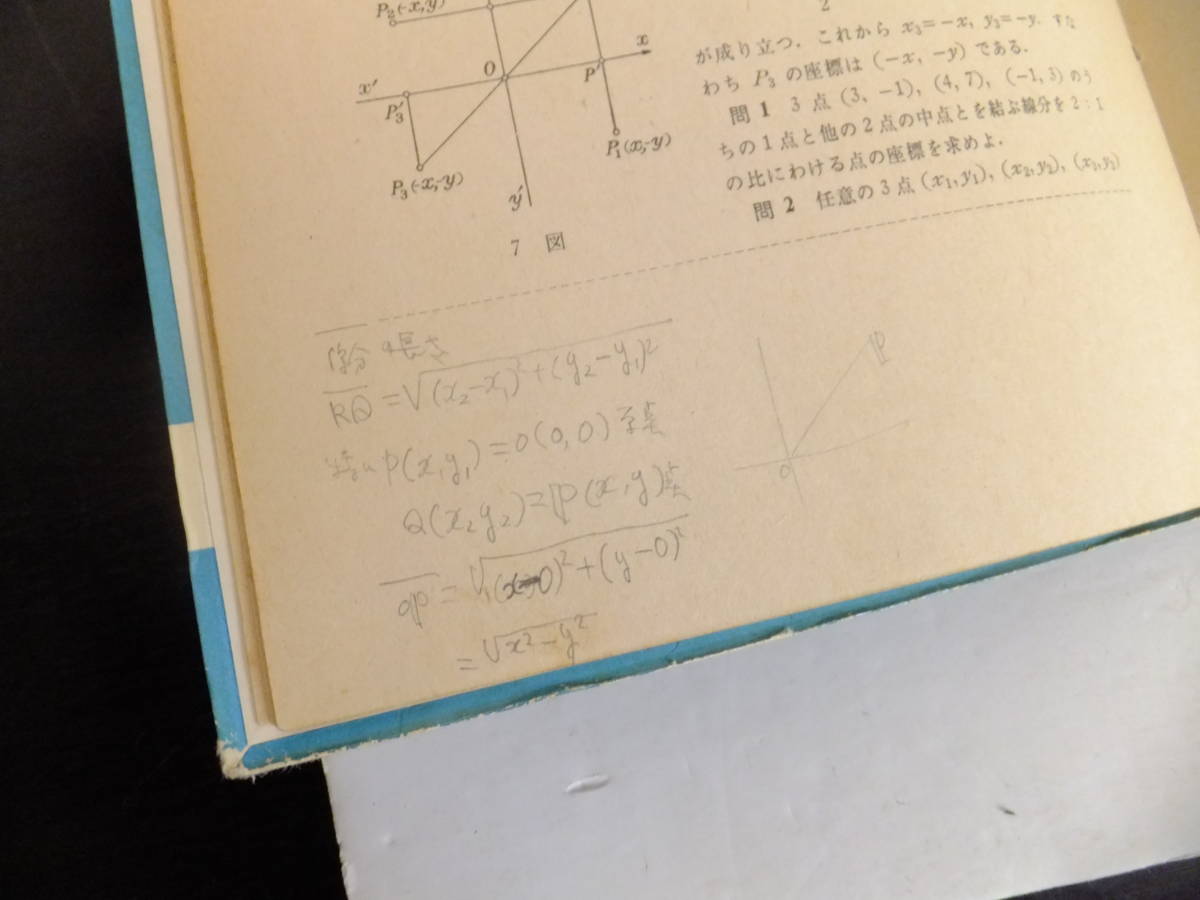 P₂(-x,y)
x
O
P′
x′
P₃′
P₁(x,-y)
P₃(-x,-y)
y′
7 図
2
が成り立つ．これから x₃=-x, y₃=-y．すな
わち P₃ の座標は (-x, -y) である．
問 1 3 点 (3, -1), (4, 7), (-1, 3) のう
ちの 1 点と他の 2 点の中点とを結ぶ線分を 2 : 1
の比にわける点の座標を求めよ．
問 2 任意の 3 点 (x₁,y₁), (x₂,y₂), (x₃,y₃)
線分の長さ
=√(x₂-x₁)²+(y₂-y₁)²
P(x,y₁)=0(0,0)
Q(x₂y₂)=P(x,y)点
OP=√(x-0)²+(y-0)²
=√x²-y²
P
O